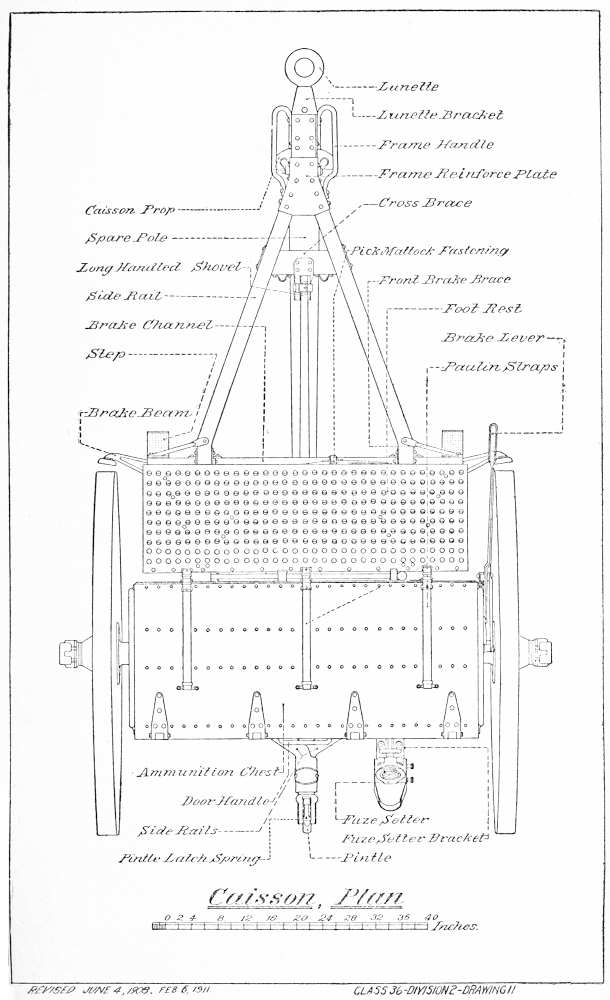 Lunette
Lunette Bracket
Frame Handle
Frame Reinforce Plate
Cross Brace
Caisson Prop
Spare Pole
Pick Mattock Fastening
Long Handled Shovel
Front Brake Brace
Side Rail
Foot Rest
Brake Channel
Brake Lever
Step
Paulin Straps
Brake Beam
Ammunition Chest
Door Handle
Fuze Setter
Side Rails
Fuze Setter Bracket
Pintle Latch Spring
Pintle
Caisson, Plan
0 2 4 8 12 16 20 24 28 32 36 40
Inches.
REVISED JUNE 4, 1908. FEB 6, 1911.
CLASS 36-DIVISION 2-DRAWING 11